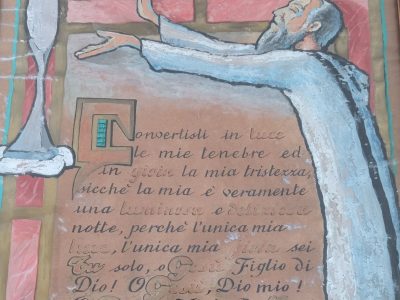 Convertisti in luce
le mie tenebre ed
in gioia la mia tristezza,
sicchè la mia è veramente
una luminosa e deliziosa
notte, perchè l'unica mia
luce, l'unica mia gioia sei
Tu solo, o Gesù Figlio di
Dio! O Gesù, Dio mio!